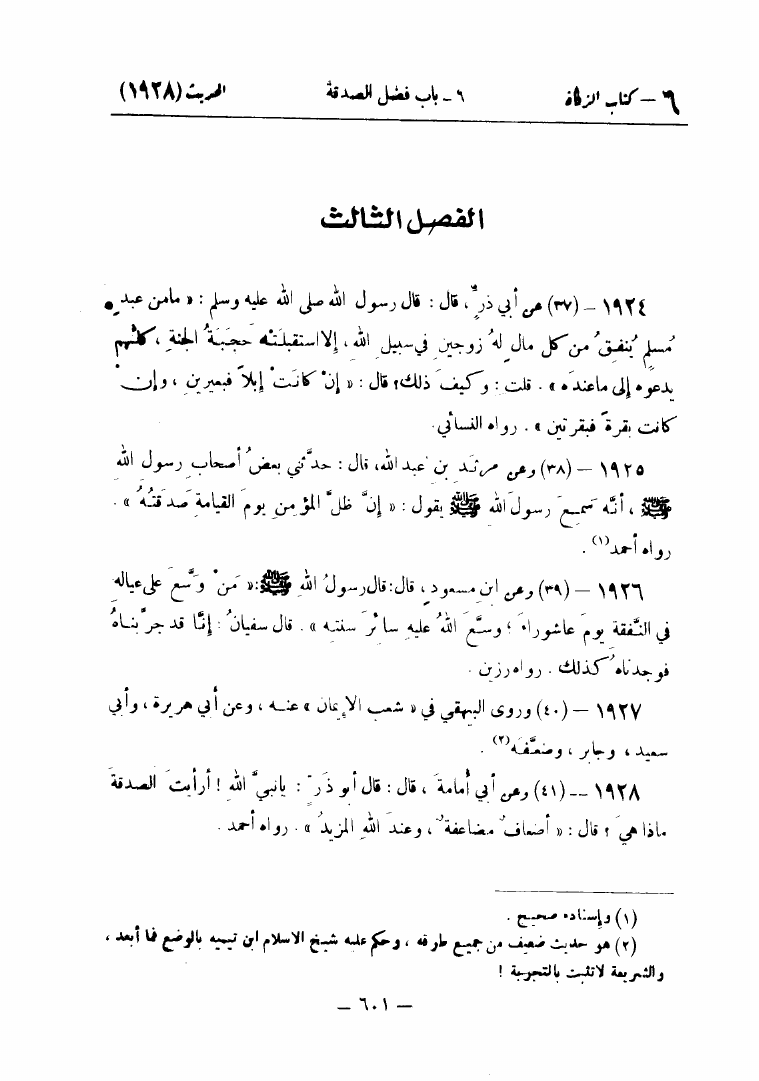 ٦ – كتاب الزكاة ٦ – باب فضل الصدقة الحديث (١٩٢٨)
الفصل الثالث
١٩٢٤ – (٣٧) عن أبي ذرٍّ، قال: قال رسول الله صلى الله عليه وسلم: « مامن عبدٍ
مُسلمٍ يُنفِقُ من كل مالٍ لهُ زوجين في سبيل الله، إلا استقبلَتْه حَجَبَةُ الجنةِ، كلُّهم
يدعوه إلى ماعندَه ». قلت: وكيفَ ذلك؟ قال: « إنْ كانَتْ إبلاً فبعيرينِ، وإنْ
كانت بقرةً فبقرتين ». رواه النسائي.
١٩٢٥ – (٣٨) وعن مرثدِ بن عبد الله، قال: حدَّثني بعضُ أصحابِ رسول الله
ﷺ، أنَّه سَمِعَ رسولَ الله ﷺ يقول: « إنَّ ظلَّ المؤمنِ يومَ القيامةِ صدقَتُهُ ».
رواه أحمد(١).
١٩٢٦ – (٣٩) وعن ابنِ مسعودٍ، قال: قال رسولُ اللهِ ﷺ: « مَنْ وَسَّعَ على عيالهِ
في النَّفقة يومَ عاشوراءَ؛ وسَّعَ اللهُ عليهِ سائرَ سنتهِ ». قال سفيانُ: إنَّا قد جرَّبناهُ
فوجدناهُ كذلك. رواه رزين.
١٩٢٧ – (٤٠) وروى البيهقي في « شعب الإيمان » عنه، وعن أبي هريرة، وأبي
سعيد، وجابر، وضعَّفَه(٢).
١٩٢٨ –– (٤١) وعن أبي أُمامةَ، قال: قال أبو ذَرٍّ: يانبيَّ اللهِ! أرأيتَ الصدقةَ
ماذا هيَ؟ قال: « أضعافٌ مضاعفةٌ، وعندَ اللهِ المزيدُ ». رواه أحمد.
(١) وإسناده صحيح.
(٢) هو حديث ضعيف من جميع طرقه، وحكم عليه شيخ الاسلام ابن تيمية بالوضع فما أبعد،
والشريعة لاتثبت بالتجربة!
– ٦٠١ –